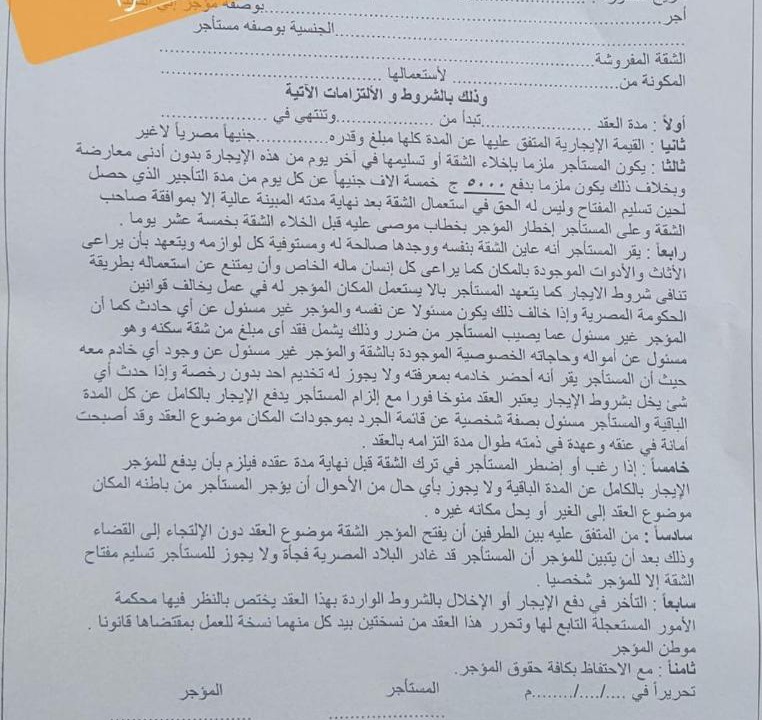 بوصفه مؤجر إلى
أجر
الجنسية بوصفه مستأجر
الشقة المفروشة
المكونة من لأستعمالها
وذلك بالشروط و الألتزامات الآتية
أولاً : مدة العقد تبدأ من وتنتهي في
ثانيا : القيمة الإيجارية المتفق عليها عن المدة كلها مبلغ وقدره جنيهاً مصرياً لاغير
ثالثا : يكون المستأجر ملزما بإخلاء الشقة أو تسليمها في أخر يوم من هذه الإيجارة بدون أدنى معارضة
وبخلاف ذلك يكون ملزما بدفع ٥٠٠٠ ج خمسة الاف جنيهاً عن كل يوم من مدة التأجير الذي حصل
لحين تسليم المفتاح وليس له الحق في استعمال الشقة بعد نهاية مدته المبينة عالية إلا بموافقة صاحب
الشقة وعلى المستأجر إخطار المؤجر بخطاب موصى عليه قبل الخلاء الشقة بخمسة عشر يوما .
رابعاً : يقر المستأجر أنه عاين الشقة بنفسه ووجدها صالحة له ومستوفية كل لوازمه ويتعهد بأن يراعى
الأثاث والأدوات الموجودة بالمكان كما يراعى كل إنسان ماله الخاص وأن يمتنع عن استعماله بطريقة
تنافى شروط الايجار كما يتعهد المستأجر بالا يستعمل المكان المؤجر له في عمل يخالف قوانين
الحكومة المصرية وإذا خالف ذلك يكون مسئولا عن نفسه والمؤجر غير مسئول عن أي حادث كما أن
المؤجر غير مسئول عما يصيب المستأجر من ضرر وذلك يشمل فقد أى مبلغ من شقة سكنه وهو
مسئول عن أمواله وحاجاته الخصوصية الموجودة بالشقة والمؤجر غير مسئول عن وجود أي خادم معه
حيث أن المستأجر يقر أنه أحضر خادمه بمعرفته ولا يجوز له تخديم احد بدون رخصة وإذا حدث أي
شئ يخل بشروط الإيجار يعتبر العقد منوخا فورا مع إلزام المستأجر يدفع الإيجار بالكامل عن كل المدة
الباقية والمستأجر مسئول بصفة شخصية عن قائمة الجرد بموجودات المكان موضوع العقد وقد أصبحت
أمانة في عنقه وعهدة في ذمته طوال مدة التزامه بالعقد .
خامساً : إذا رغب أو إضطر المستأجر في ترك الشقة قبل نهاية مدة عقده فيلزم بأن يدفع للمؤجر
الإيجار بالكامل عن المدة الباقية ولا يجوز بأي حال من الأحوال أن يؤجر المستأجر من باطنه المكان
موضوع العقد إلى الغير أو يحل مكانه غيره .
سادساً : من المتفق عليه بين الطرفين أن يفتح المؤجر الشقة موضوع العقد دون الإلتجاء إلى القضاء
وذلك بعد أن يتبين للمؤجر أن المستأجر قد غادر البلاد المصرية فجأة ولا يجوز للمستأجر تسليم مفتاح
الشقة إلا للمؤجر شخصيا .
سابعاً : التأخر في دفع الإيجار أو الإخلال بالشروط الواردة بهذا العقد يختص بالنظر فيها محكمة
الأمور المستعجلة التابع لها وتحرر هذا العقد من نسختين بيد كل منهما نسخة للعمل بمقتضاها قانونا .
موطن المؤجر
ثامناً : مع الاحتفاظ بكافة حقوق المؤجر.
تحريراً في ..../..../........م المستأجر المؤجر